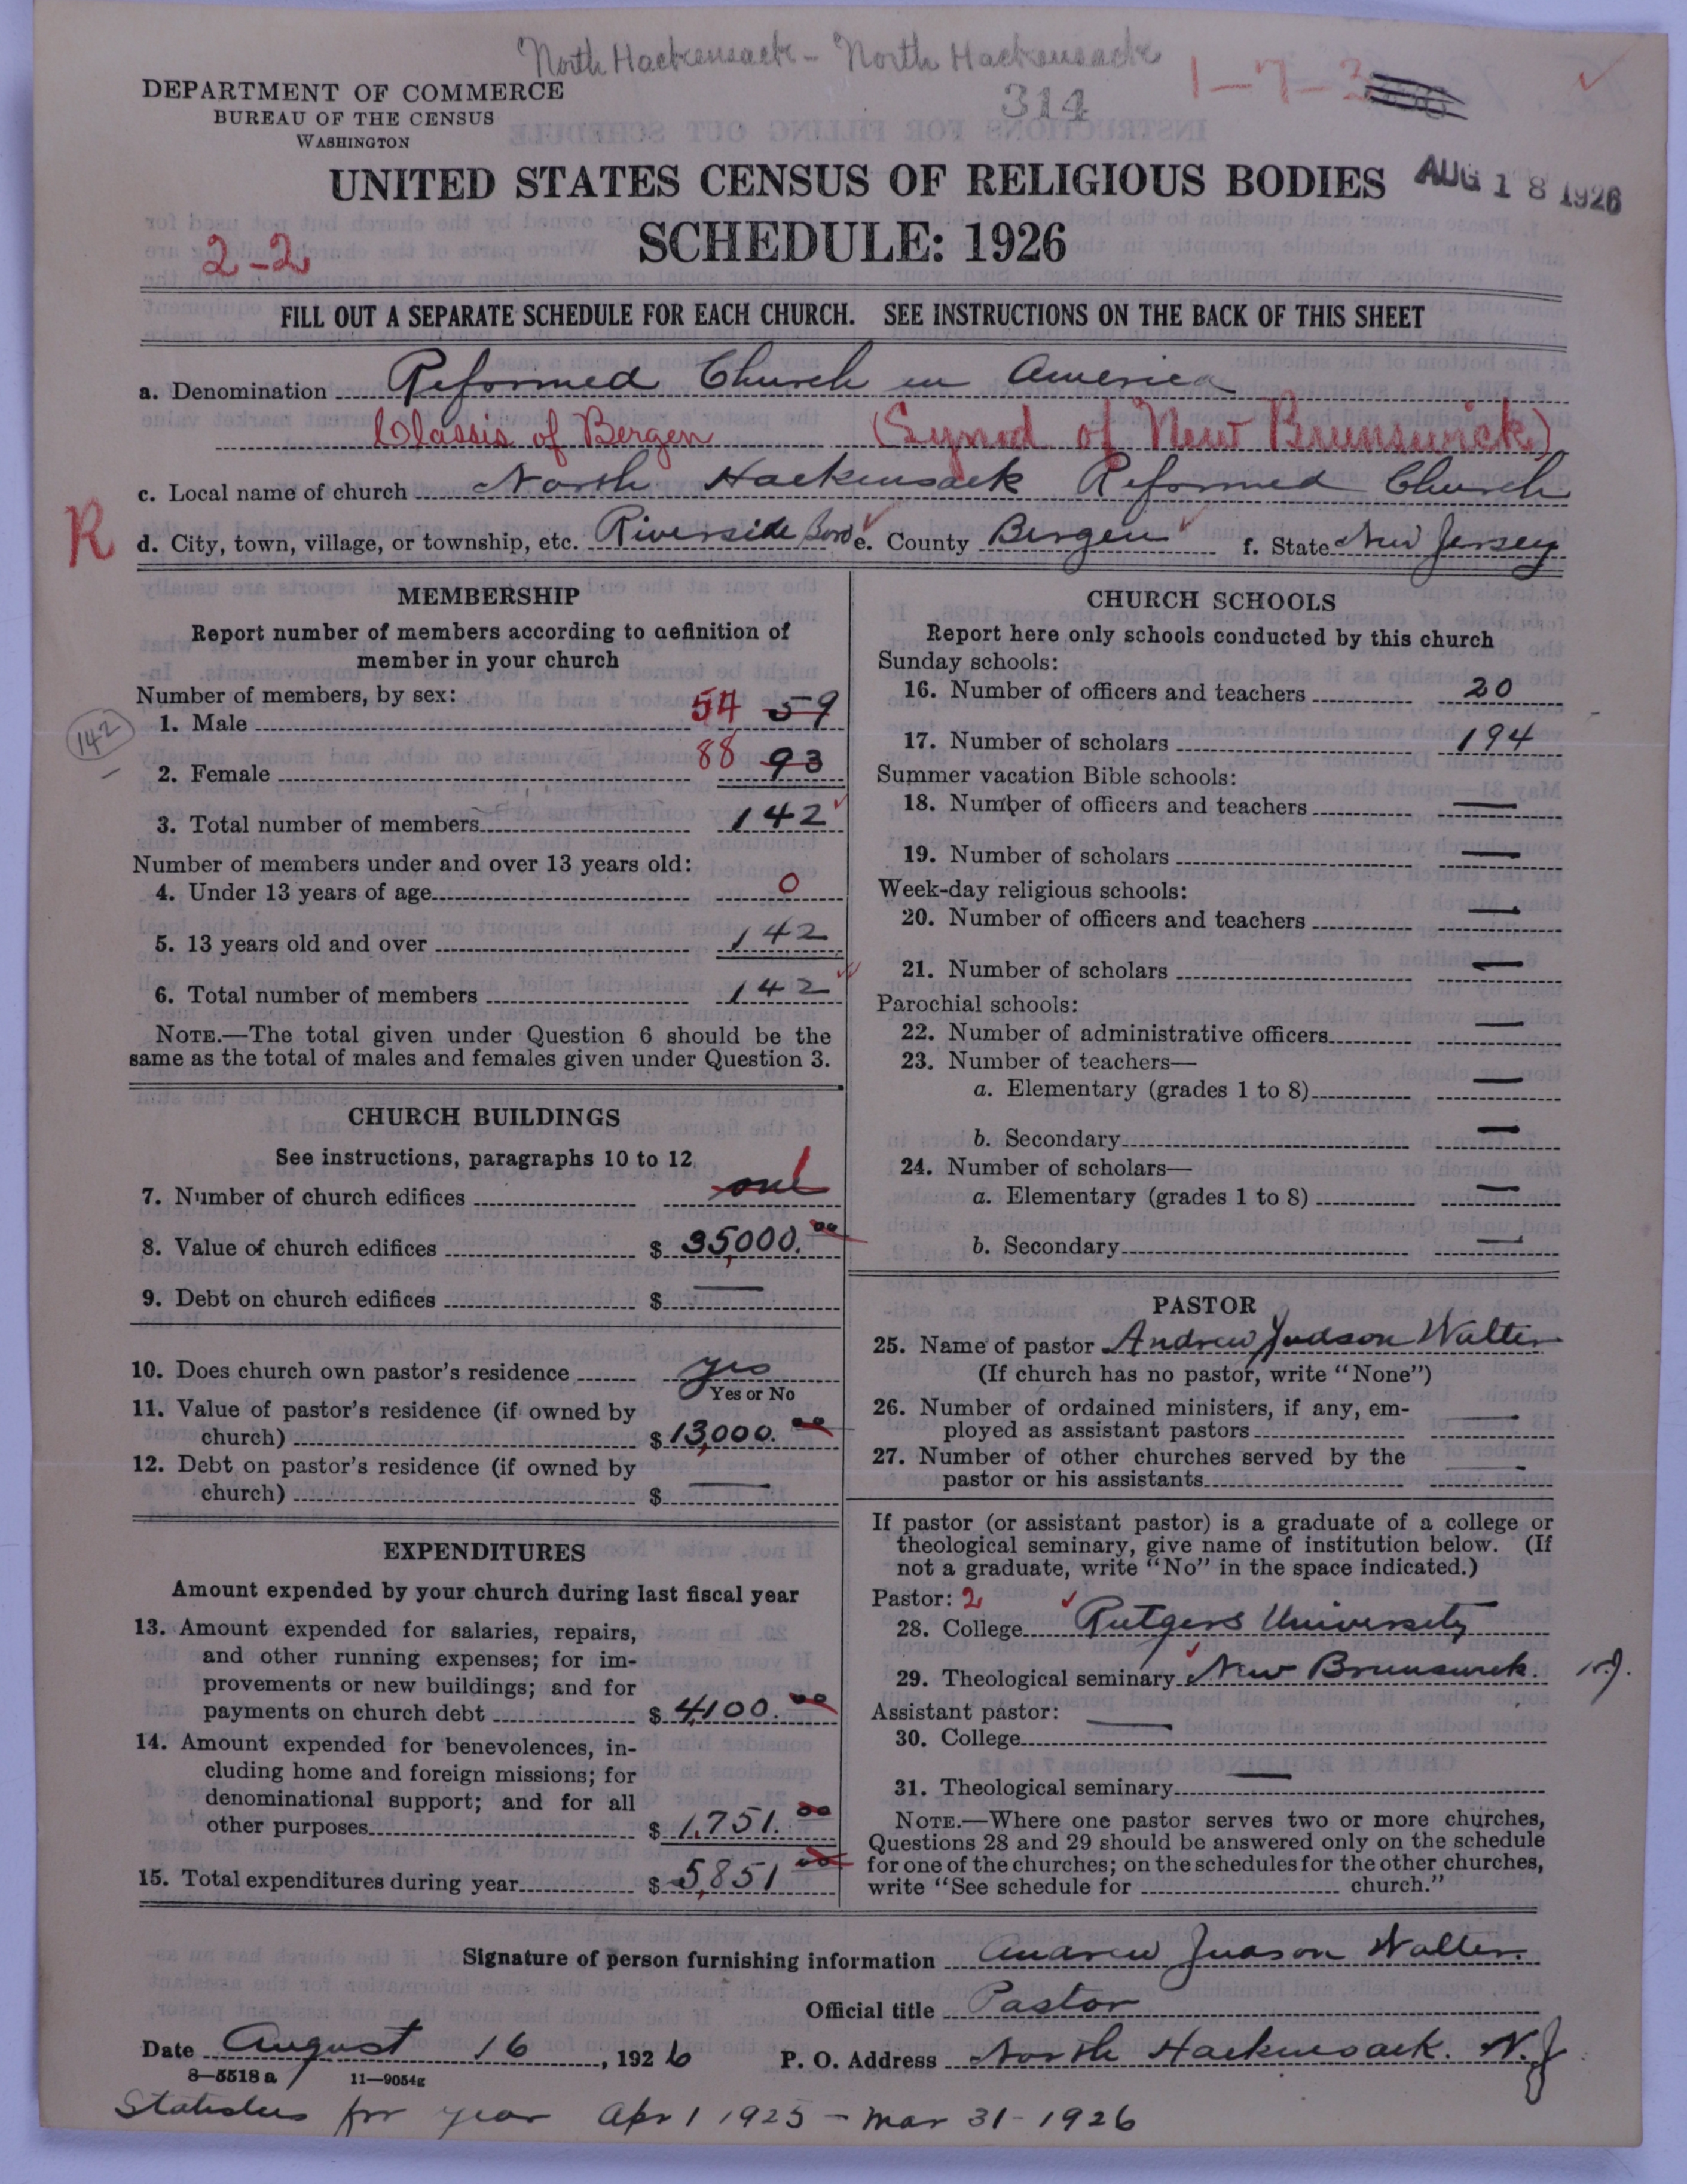 North Hackensack - North Hackensack
DEPARTMENT OF COMMERCE
BUREAU OF THE CENSUS
WASHINGTON
314
1-7-3
UNITED STATES CENSUS OF RELIGIOUS BODIES
AUG 18 1926
SCHEDULE: 1926
2-2
FILL OUT A SEPARATE SCHEDULE FOR EACH CHURCH. SEE INSTRUCTIONS ON THE BACK OF THIS SHEET
a. Denomination Reformed Church in America
Classis of Bergen (Synod of New Brunswick)
c. Local name of church North Hackensack Reformed Church
R
d. City, town, village, or township, etc. Riverside Boro e. County Bergen f. State New Jersey
MEMBERSHIP
Report number of members according to definition of
member in your church
Number of members, by sex:
1. Male 54 59
142
2. Female 88 93
3. Total number of members 142
Number of members under and over 13 years old:
4. Under 13 years of age 0
5. 13 years old and over 142
6. Total number of members 142
NOTE.—The total given under Question 6 should be the
same as the total of males and females given under Question 3.
CHURCH BUILDINGS
See instructions, paragraphs 10 to 12
7. Number of church edifices one 1
8. Value of church edifices $ 35,000.00
9. Debt on church edifices $ —
10. Does church own pastor's residence yes
Yes or No
11. Value of pastor's residence (if owned by
church) $ 13,000.00
12. Debt on pastor's residence (if owned by
church) $ —
EXPENDITURES
Amount expended by your church during last fiscal year
13. Amount expended for salaries, repairs,
and other running expenses; for im-
provements or new buildings; and for
payments on church debt $ 4,100.00
14. Amount expended for benevolences, in-
cluding home and foreign missions; for
denominational support; and for all
other purposes $ 1,751.00
15. Total expenditures during year $ 5,851 00
CHURCH SCHOOLS
Report here only schools conducted by this church
Sunday schools:
16. Number of officers and teachers 20
17. Number of scholars 194
Summer vacation Bible schools:
18. Number of officers and teachers —
19. Number of scholars —
Week-day religious schools:
20. Number of officers and teachers —
21. Number of scholars —
Parochial schools:
22. Number of administrative officers —
23. Number of teachers—
a. Elementary (grades 1 to 8) —
b. Secondary —
24. Number of scholars—
a. Elementary (grades 1 to 8) —
b. Secondary —
PASTOR
25. Name of pastor Andrew Judson Walter
(If church has no pastor, write "None")
26. Number of ordained ministers, if any, em-
ployed as assistant pastors —
27. Number of other churches served by the
pastor or his assistants —
If pastor (or assistant pastor) is a graduate of a college or
theological seminary, give name of institution below. (If
not a graduate, write "No" in the space indicated.)
Pastor: 2
28. College Rutgers University
29. Theological seminary New Brunswick. N.J.
Assistant pastor:
30. College —
31. Theological seminary —
NOTE.—Where one pastor serves two or more churches,
Questions 28 and 29 should be answered only on the schedule
for one of the churches; on the schedules for the other churches,
write "See schedule for church."
Signature of person furnishing information Andrew Judson Walter
Official title Pastor
Date August 16, 1926 P. O. Address North Hackensack. N.J
8—5518 a 11—9054g
Statistics for year Apr 1 1925 - Mar 31 - 1926